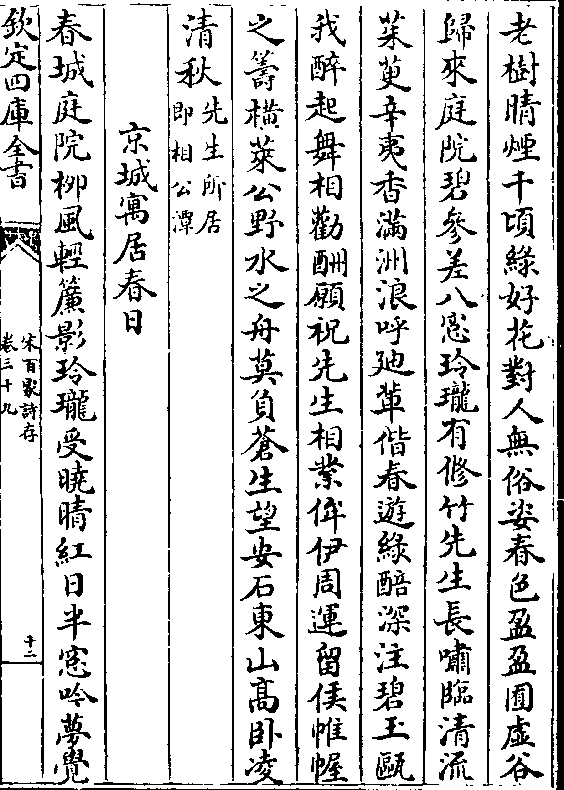 老樹晴煙千頃緑好花對人無俗姿春色盈盈圃虚谷
歸來庭院碧參差八窓玲瓏有脩竹先生長嘯臨清流
茱萸辛夷香滿洲浪呼廸輩偕春遊緑醅深注碧玉甌
我醉起舞相勸酬願祝先生相業侔伊周運留侯帷幄
之籌横萊公野水之舟莫負蒼生望安石東山髙卧凌
清秋先生所居
即相公潭
京城寓居春日
春城庭院栁風輕簾影玲瓏受曉晴紅日半窓吟夢覺
欽定四庫全書
宋百家詩存
卷三十九
十二